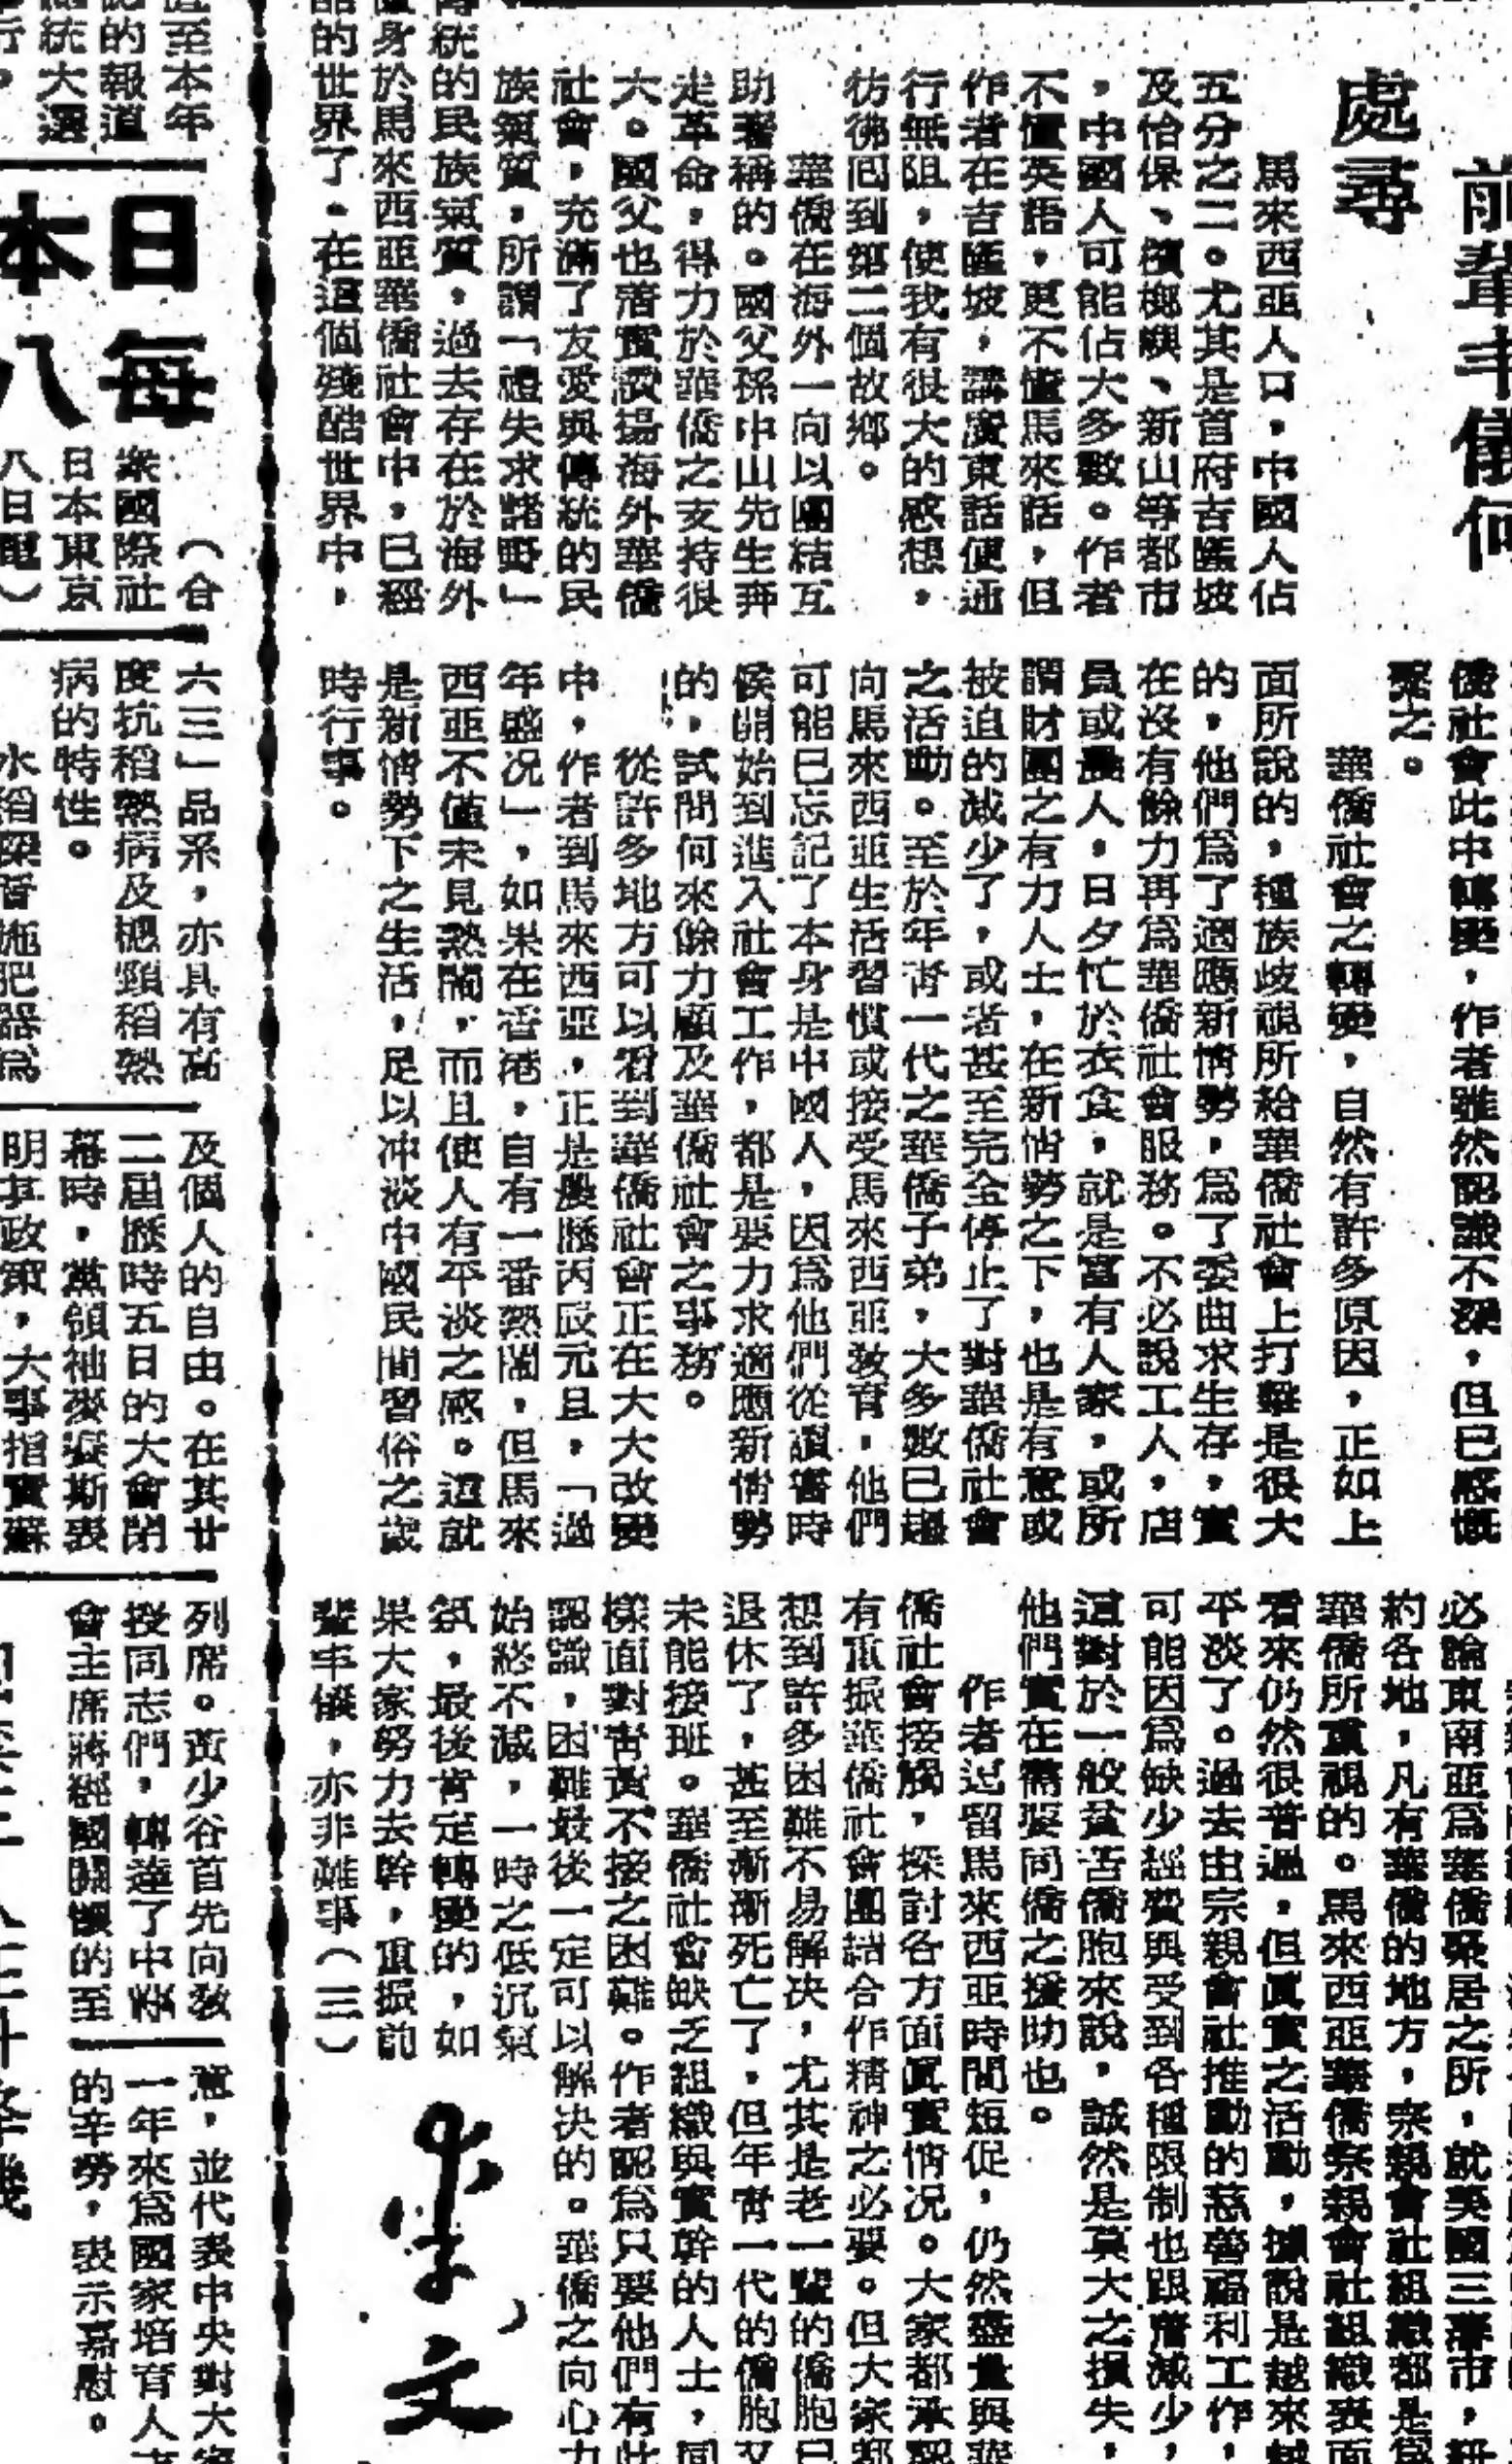 處尋
馬來西亞人口，中國人佔
五分之二。尤其是首府吉隆坡
及怡保、檳榔嶼、新山等都市
，中國人可能佔大多數。作者
不懂英語，更不懂馬來話，但
作者在吉隆坡，講廣東話便通
行無阻，使我有很大的感想，
彷彿囘到第二個故鄉。
華僑在海外一向以團結互
助著稱的。國父孫中山先生奔
走革命，得力於華僑之支持很
六。國父也著實讚揚海外華僑
社會，充滿了友愛與傳統的民
族氣質，所謂「禮失求諸野」
傳統的民族氣質，過去存在於海外
身於馬來西亞華僑社會中，已經
酷的世界了。在這個殘酷世界中，
僑社會此中轉變，作者雖然認識不深，但已感慨
繫之。
華僑社會之轉變，自然有許多原因，正如上
面所說的，種族歧視所給華僑社會上打擊是很大
的，他們爲了適應新情勢，爲了委曲求生存，實
在沒有餘力再爲華僑社會服務。不必說工人，店
員或農人，日夕忙於衣食，就是富有人家，或所
謂財團之有力人士，在新情勢之下，也是有意或
被迫的減少了，或者甚至完全停止了對華僑社會
之活動。至於年靑一代之華僑子弟，大多數已趨
向馬來西亞生活習慣或接受馬來西亞敎育，他們
可能已忘記了本身是中國人，因爲他們從讀書時
候開始到進入社會工作，都是要力求適應新情勢
的，試問何來餘力顧及華僑社會之事務。
從許多地方可以看到華僑社會正在大大改變
中，作者到馬來西亞，正是農曆丙辰元旦，「過
年盛况」，如果在香港，自有一番熱鬧，但馬來
西亞不僅未見熱鬧，而且使人有平淡之感。這就
是新情勢下之生活，足以冲淡中國民間習俗之歲
時行事。
必論東南亞爲華僑聚居之所，就美國三藩市，
約各地，凡有華僑的地方，宗親會社組織都是
華僑所重視的。馬來西亞華僑宗親會社組織表面
看來仍然很普遍，但眞實之活動，據說是越來越
平淡了。過去由宗親會社推動的慈善福利工作，
可能因爲缺少經費與受到各種限制也跟着減少，
這對於一般貧苦僑胞來說，誠然是莫大之損失，
他們實在需要同僑之援助也。
作者逗留馬來西亞時間短促，仍然盡量與華
僑社會接觸，探討各方面眞實情况。大家都承認
有重振華僑社會團結合作精神之必要。但大家都
想到許多困難不易解决，尤其是老一輩的僑胞已
退休了，甚至漸漸死亡了，但年靑一代的僑胞又
未能接班。華僑社會缺乏組織與實幹的人士，同
樣面對靑黃不接之困難。作者認爲只要他們有此
認識，困難最後一定可以解决的。華僑之向心力
始終不減，一時之低沉氣
氛，最後肯定轉變的，如
果大家努力去幹，重振前
輩丰儀，亦非難事（三）
直至本年
的報道
統大選
日每
本八
（合
衆國際社
日本東京
八日電）
六三」品系，亦具有高
度抗稻熱病及穗頸稻熱
病的特性。
及個人的自由。在其廿
二屆歷時五日的大會閉
幕時，黨領袖麥凝斯表
明其政策，大事指實蘇
列席。黃少谷首先向敎
授同志們，轉達了中常
會主席蔣經國關懷的至
意，並代表中央對大家
一年來爲國家培育人才
的辛勞，表示嘉慰。